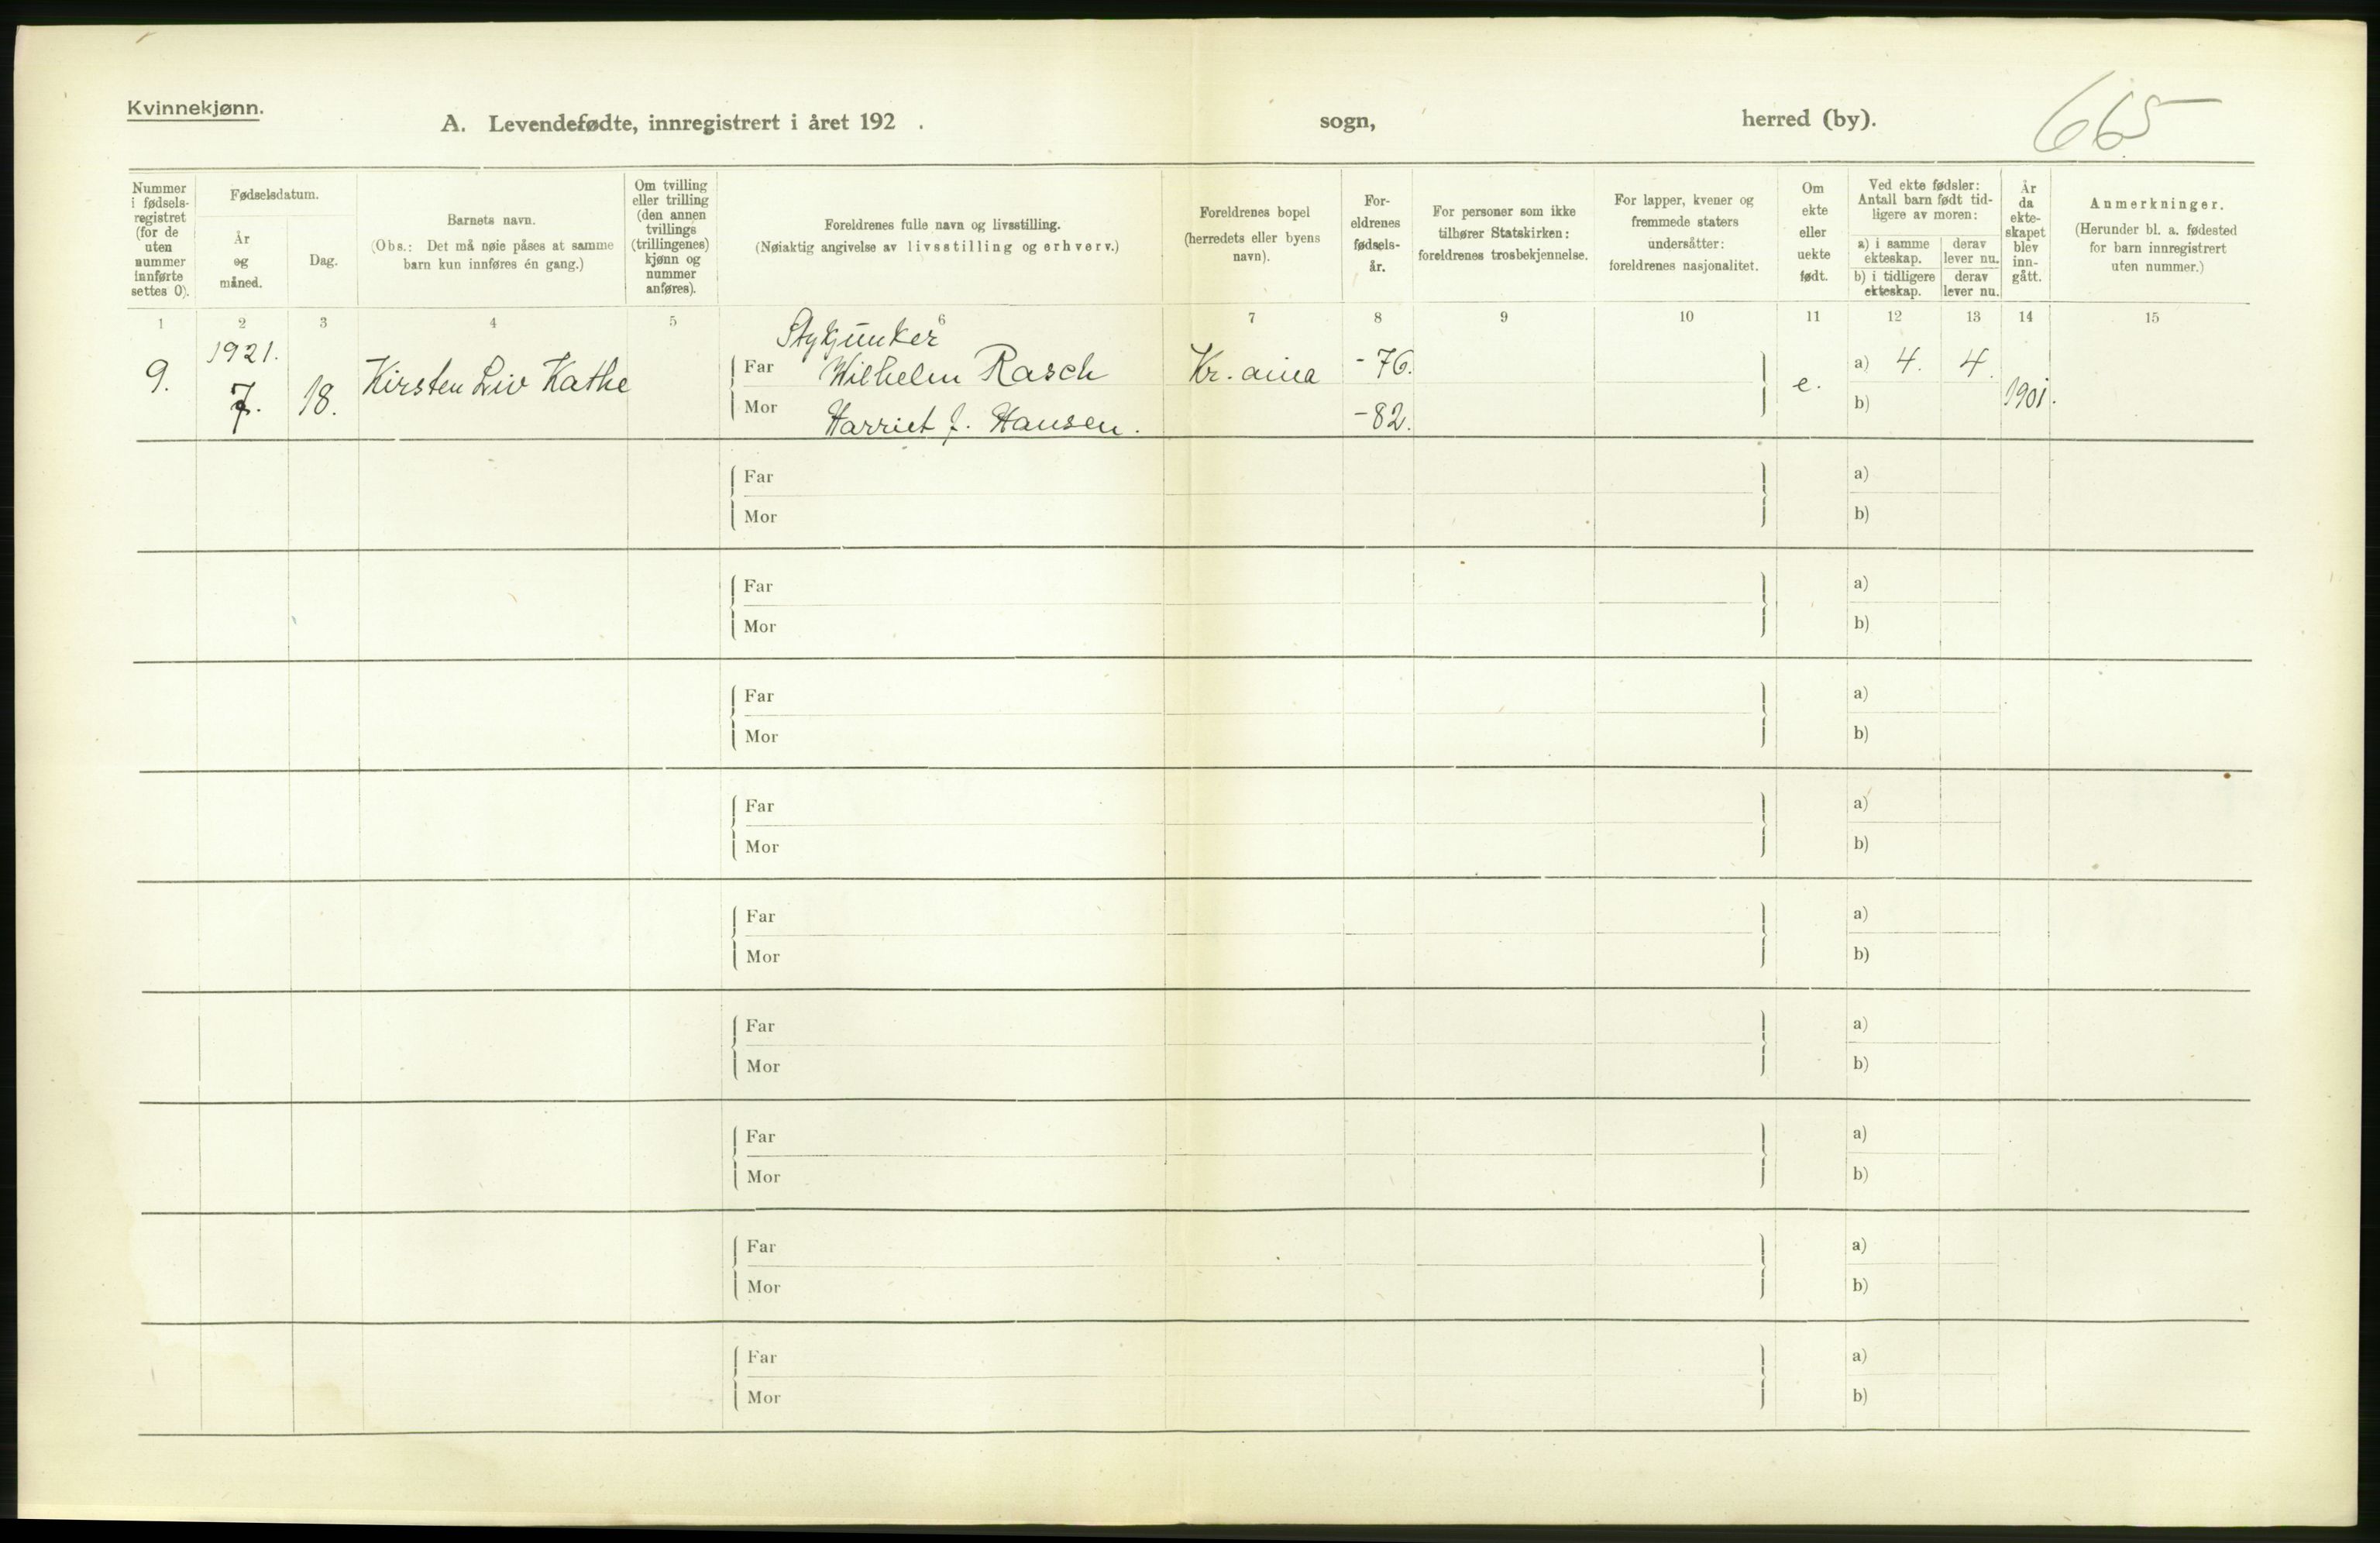 Kvinnekjønn.
A. Levendefødte, innregistrert i året 192 . sogn, herred (by). 665
Nummer i fødselsregistret (for de uten nummer innførte settes 0).
Fødselsdatum.
År og måned.
Dag.
Barnets navn.
(Obs.: Det må nøie påses at samme barn kun innføres én gang.)
Om tvilling eller trilling (den annen tvillings (trillingenes) kjønn og nummer anføres).
Foreldrenes fulle navn og livsstilling.
(Nøiaktig angivelse av livsstilling og erhverv.)
Foreldrenes bopel (herredets eller byens navn).
Foreldrenes fødselsår.
For personer som ikke tilhører Statskirken: foreldrenes trosbekjennelse.
For lapper, kvener og fremmede staters undersåtter: foreldrenes nasjonalitet.
Om ekte eller uekte født.
Ved ekte fødsler: Antall barn født tidligere av moren:
a) i samme ekteskap.
derav lever nu.
b) i tidligere ekteskap.
derav lever nu.
År da ekteskapet blev inngått.
Anmerkninger.
(Herunder bl. a. fødested for barn innregistrert uten nummer.)
1 2 3 4 5 6 7 8 9 10 11 12 13 14 15
9. 1921. 7. 18. Kirsten Liv Kathe
Stykjunker
Far Wilhelm Rasch Kr.ania -76. e. a) 4. 4. 1901.
Mor Harriet J. Hansen. -82. b)
Far a)
Mor b)
Far a)
Mor b)
Far a)
Mor b)
Far a)
Mor b)
Far a)
Mor b)
Far a)
Mor b)
Far a)
Mor b)
Far a)
Mor b)
Far a)
Mor b)